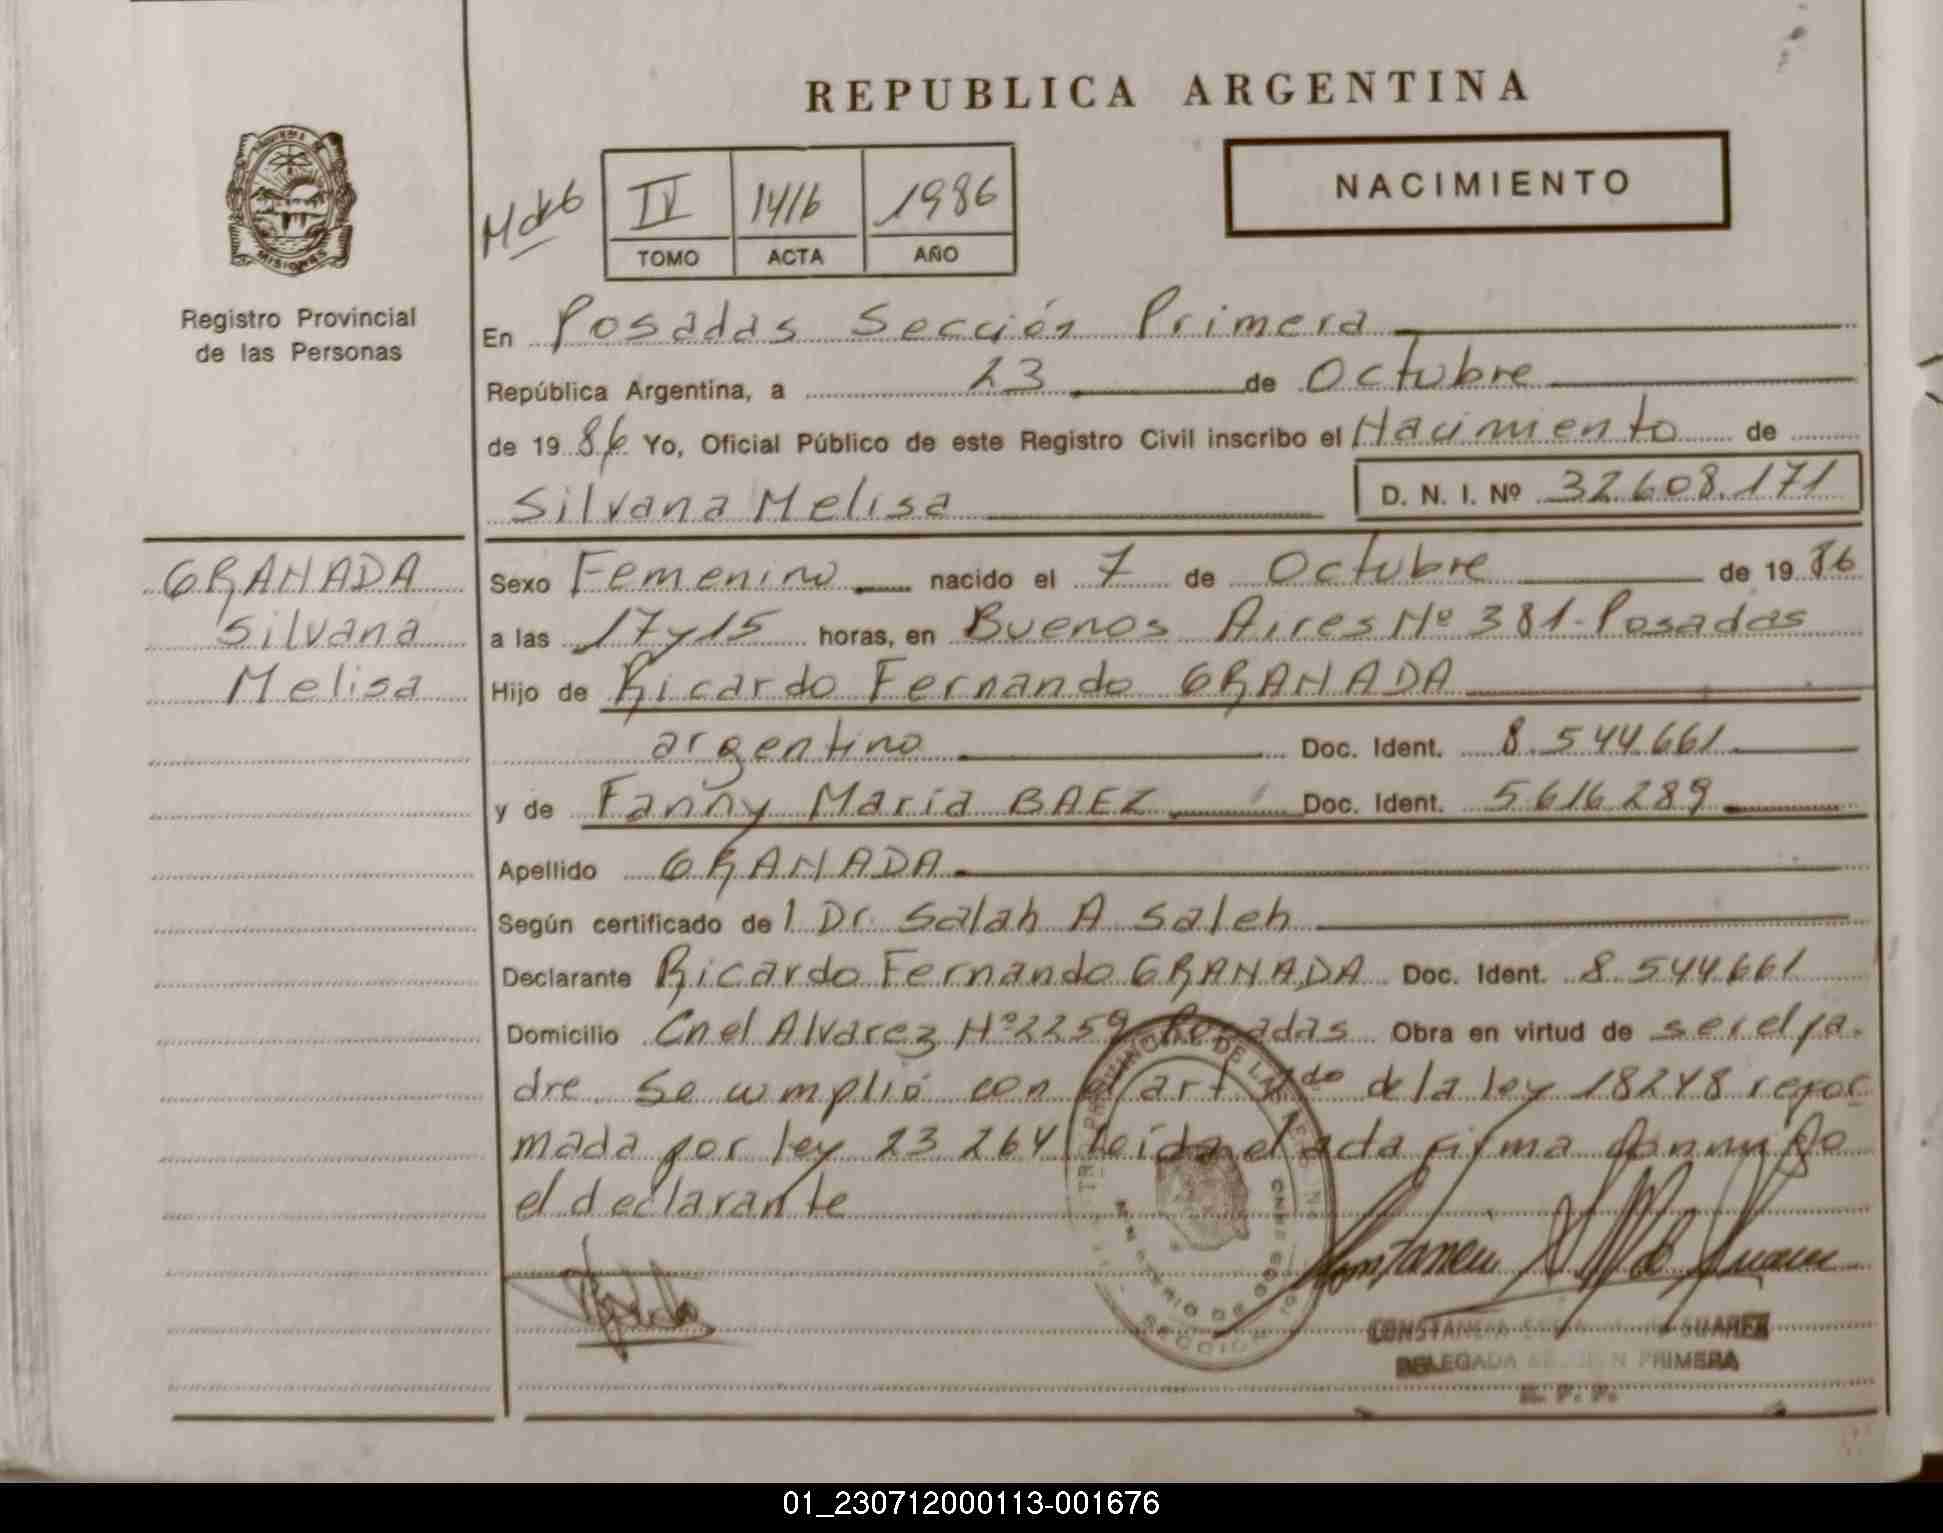 REPUBLICA ARGENTINA
NACIMIENTO
IV 1416 1986
TOMO ACTA AÑO
MISIONES
Registro Provincial
de las Personas
En Posadas Sección Primera
República Argentina, a 23 de Octubre
de 1986 Yo, Oficial Público de este Registro Civil inscribo el Nacimiento de
Silvana Melisa D. N. I. Nº 32.608.171
GRANADA
Silvana
Melisa
Sexo Femenino nacido el 7 de Octubre de 1986
a las 17 y 15 horas, en Buenos Aires Nº 381-Posadas
Hijo de Ricardo Fernando GRANADA
argentino Doc. Ident. 8.544.661
y de Fanny María BAEZ Doc. Ident. 5616289
Apellido GRANADA
Según certificado de l Dr. Salah A Saleh
Declarante Ricardo Fernando GRANADA Doc. Ident. 8.544.661
Domicilio Cnel Alvarez Nº 2259 Posadas Obra en virtud de ser el pa-
dre. Se cumplió con el art de la ley 18248 refor
mada por ley 23.264 Leída el acta firma conmigo
el declarante
CONSTANCIA SUAREZ
DELEGADA SECCION PRIMERA
R. P. P.
01_230712000113-001676